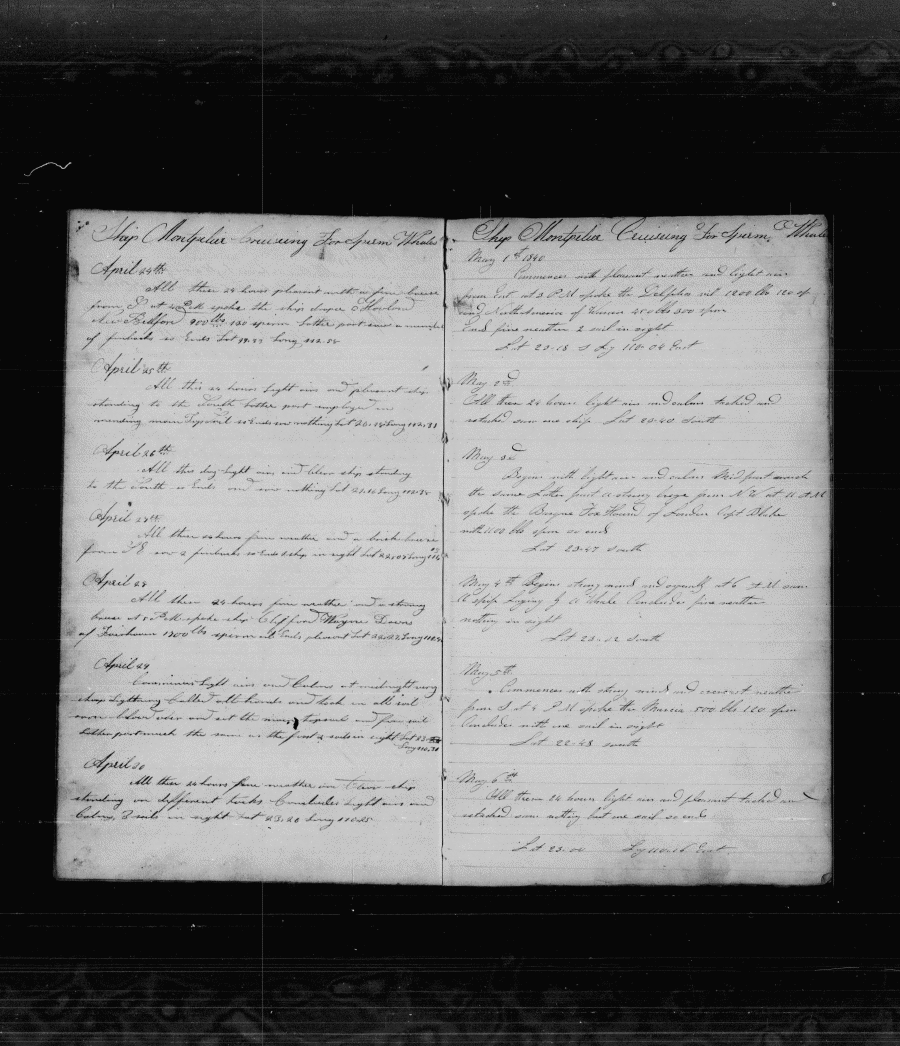 Ship Montpelier Cruising For Sperm Whales
April 24th
All these 24 hours pleasant with a fine breeze
from at PM spoke the ship Howland
New Bedford 900 bbls 130 sperm latter part saw a number
of finbacks so Ends Lat 19.33 Long 112.
April 25th
All this 24 hours light airs and pleasant ship
standing to the South latter part employed in
mending main Topsail so Ends saw nothing Lat Long 112.
April 26th
All this day light airs and clear ship standing
to the South so Ends and saw nothing Lat Long 112.
April 27th
All these 24 hours fine weather and a brisk breeze
from SE saw 2 finbacks so Ends 1 ship in sight Lat Long
April 28
All these 24 hours fine weather and a strong
breeze at 5 PM spoke ship Clifford Wayne
of Fairhaven 1700 bbls sperm oil Ends pleasant Lat Long
April 29
Commences light airs and Calms at midnight very
sharp lightning Called all hands and took in all sail
soon blowed over and set the main topsail and fore sail
latter part much the same as the first 2 sails in sight Lat 23
Long 110.
April 30
All these 24 hours fine weather and Clear ship
standing on different tacks Concludes light airs and
Calms, 3 sails in sight Lat 23.20 Long 110.25
Ship Montpelier Cruising For Sperm Whale
May 1st 1840
Commences with pleasant weather and light airs
from East at 3 PM spoke the Delphia oil 1200 bbls 120 sp
and of 450 bbls 300 sperm
Ends fine weather 2 sail in sight
Lat 23-18 S Lg 110-04 East
May 2d
All these 24 hours light airs and calms tacked and
retacked saw one ship Lat 23-40 South
May 3d
Begins with light airs and calms Mid part much
the same Latter part a strong breeze from N.W. at 11 AM
spoke the Barque Fox Hound of London Capt
with 1100 bbls sperm so ends
Lat 23-47 South
May 4th Begins strong winds and squally at 6 AM saw
a ship laying by a Whale Concludes fine weather
nothing in sight
Lat 23-12 South
May 5th
Commences with strong winds and weather
from S at 4 P.M spoke the Marcia 500 bbls 120 sperm
Concludes with one sail in sight
Lat 22-48 South
May 6th
All these 24 hours light airs and pleasant tacked and
retacked saw nothing but one sail so ends
Lat 23-04 Lg East